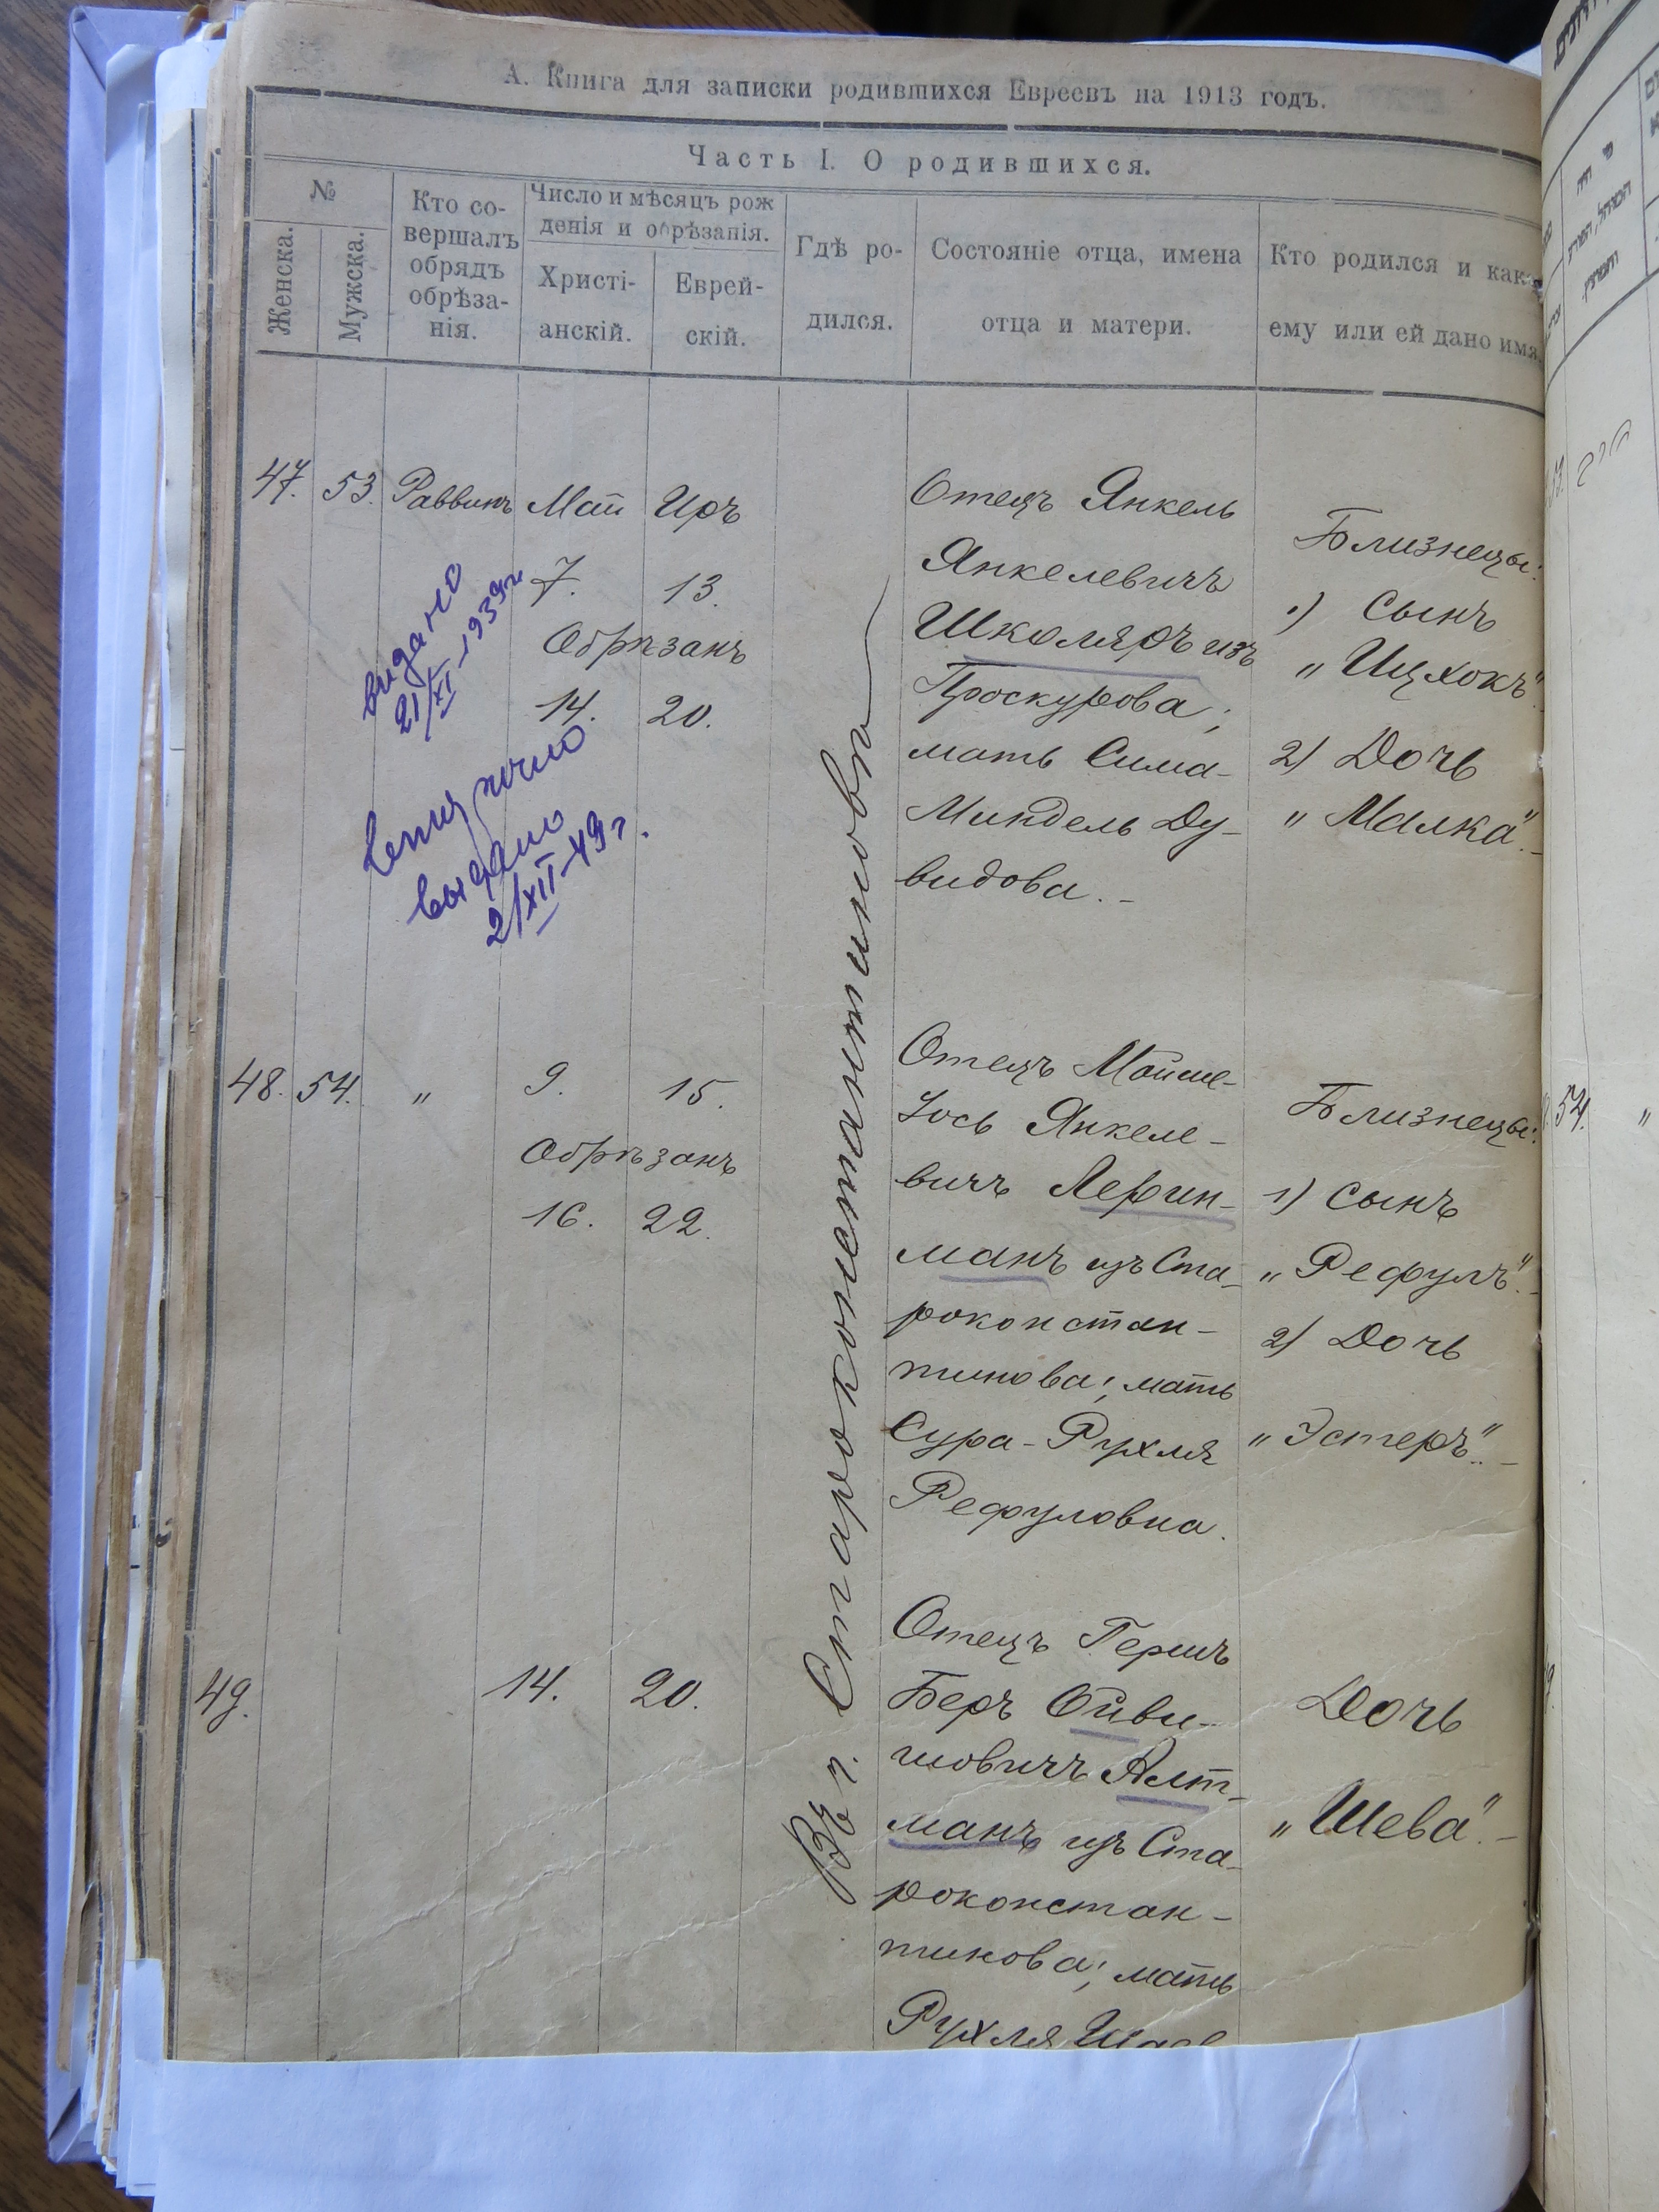 А. Книга для записки родившихся Евреевъ на 1913 годъ.
Часть I. О родившихся.
№
Женска.
Мужска.
Кто со-
вершалъ
обрядъ
обрѣза-
нія.
Число и мѣсяцъ рож
денія и обрѣзанія.
Христі-
анскій.
Еврей-
скій.
Гдѣ ро-
дился.
Состояніе отца, имена
отца и матери.
Кто родился и како
ему или ей дано имя.
47. 53. Раввинъ Май Иръ
7. 13.
Обрѣзанъ
14. 20.
видано
21/XI-1939г
выдано
21/XII-49г.
Въ г. Староконстантиновѣ
Отецъ Янкель
Янкелевичъ
Школяръ изъ
Проскурова;
мать Сима-
Миндель Ду-
видова.-
Близнецы:
1) Сынъ
„Ицхокъ".
2) Дочь
„Малка".-
48. 54. „ 9. 15.
Обрѣзанъ
16. 22.
Отецъ Мойше-
Іось Янкеле-
вичъ Лерин-
манъ изъ Ста-
роконстан-
тинова; мать
Сура-Рухля
Рефуловна.
Близнецы:
1) Сынъ
„Рефулъ".-
2) Дочь
„Эстеръ".-
49. 14. 20.
Отецъ Гершъ
Беръ Ойви-
шовичъ Алт-
манъ изъ Ста-
роконстан-
тинова; мать
Рухля
Дочь
„Шева".-
54. „